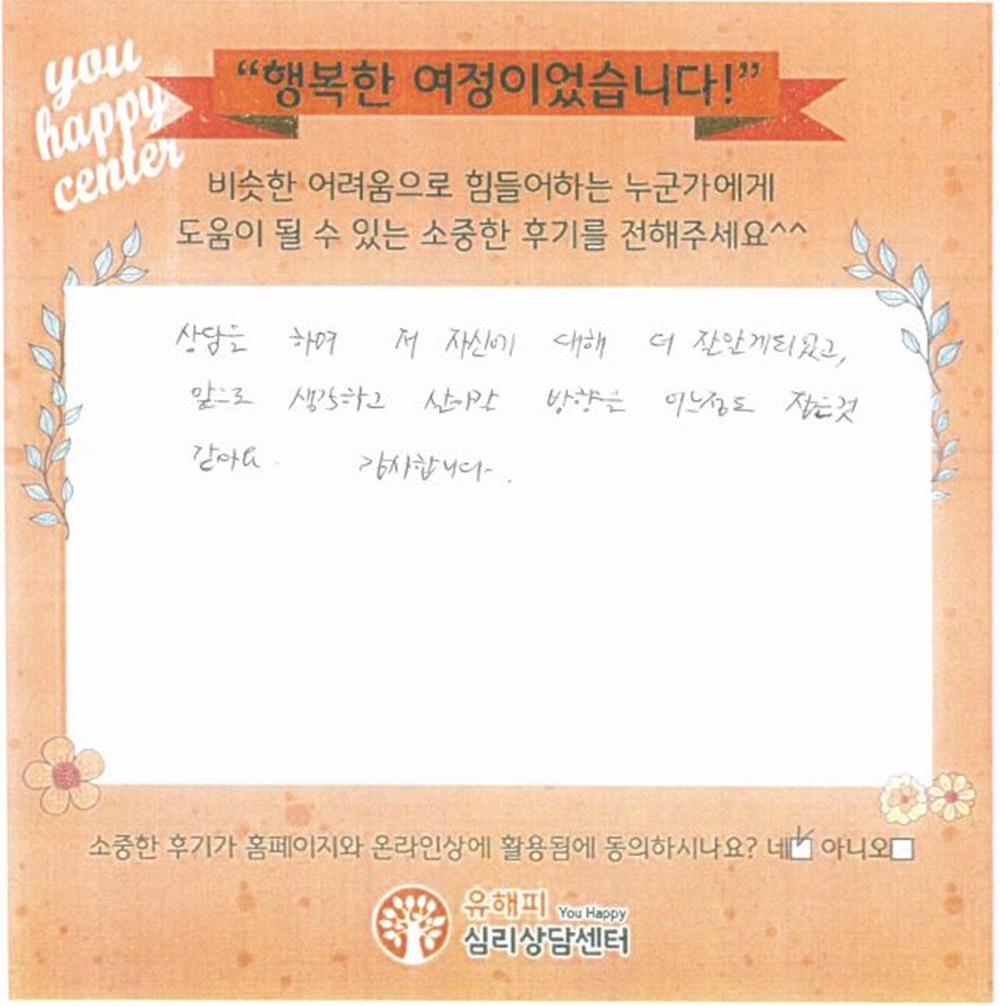 you
happy
center
“행복한 여정이었습니다!”
비슷한 어려움으로 힘들어하는 누군가에게
도움이 될 수 있는 소중한 후기를 전해주세요^^
상담을 하며 저 자신에 대해 더 잘알게되었고,
앞으로 생각하고 살아갈 방향을 어느정도 잡은것
같아요. 감사합니다.
소중한 후기가 홈페이지와 온라인상에 활용됨에 동의하시나요? 네☑ 아니오☐
유해피 You Happy
심리상담센터